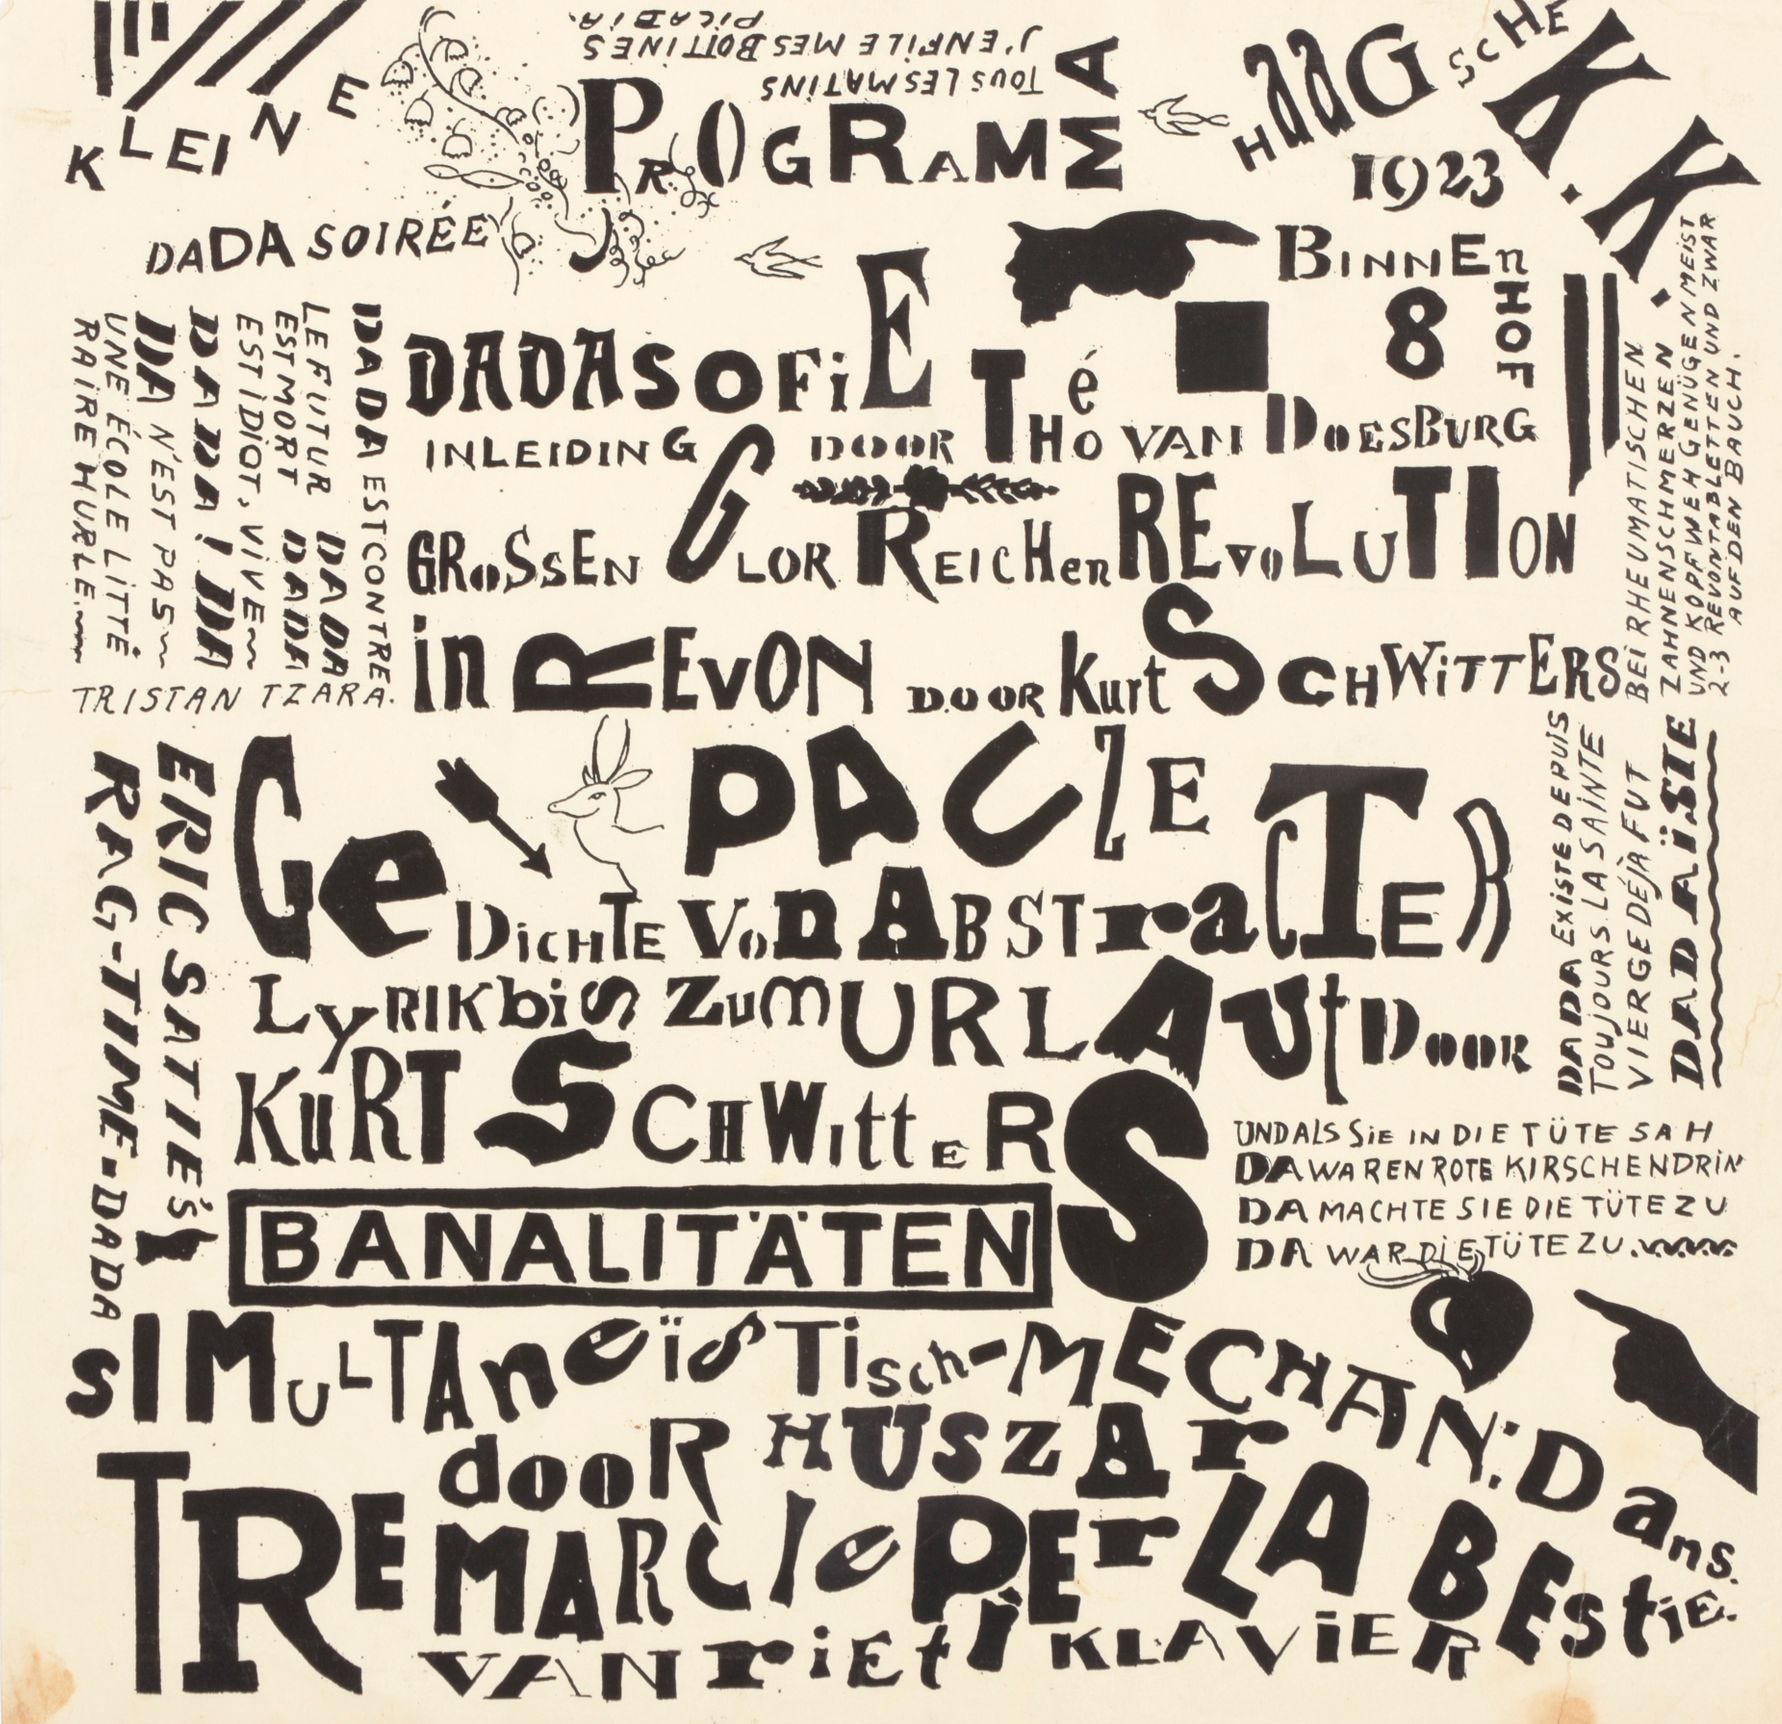 KLEINE
DADA SOIRÉE
TOUS LES MATINS
J'ENFILE MES BOTTINES
PICABIA.
PROGRAMMA
HAAGSCHE K.K.
1923
BINNENHOF
8
DADA EST CONTRE
LE FUTUR DADA
EST MORT DADA
EST IDIOT, VIVE
DADA! DA
DA N'EST PAS
UNE ÉCOLE LITTÉ
RAIRE HURLE.
TRISTAN TZARA.
DADASOFIE
INLEIDING DOOR Thé
Tho VAN DOESBURG
GROSSEN GLORREICHEN REVOLUTION
in REVON DOOR Kurt SCHWITTERS
BEI RHEUMATISCHEN
ZAHNENSCHMERZEN
UND KOPFWEH GENÜGEN MEIST
2-3 REVONTABLETTEN UND ZWAR
AUF DEN BAUCH.
ERIC SATIE'S
RAG-TIME-DADA
PAUZE
GeDICHTE VON ABSTraCTER
LyRIK biS ZUM URLAUt DOOR
KuRT SCHWittERS
DADA EXISTE DEPUIS
TOUJOURS LA SAINTE
VIERGE DÉJÀ FUT
DADAÏSTE
UND ALS SIE IN DIE TÜTE SAH
DA WAREN ROTE KIRSCHEN DRIN
DA MACHTE SIE DIE TÜTE ZU
DA WAR DIE TÜTE ZU.
BANALITÄTEN
SIMULTAneïSTisch-MECHAN: Dans.
dooR HUSZAr
TREMARCIe PEr LA BEStiE.
VAN riEti KLAVIER